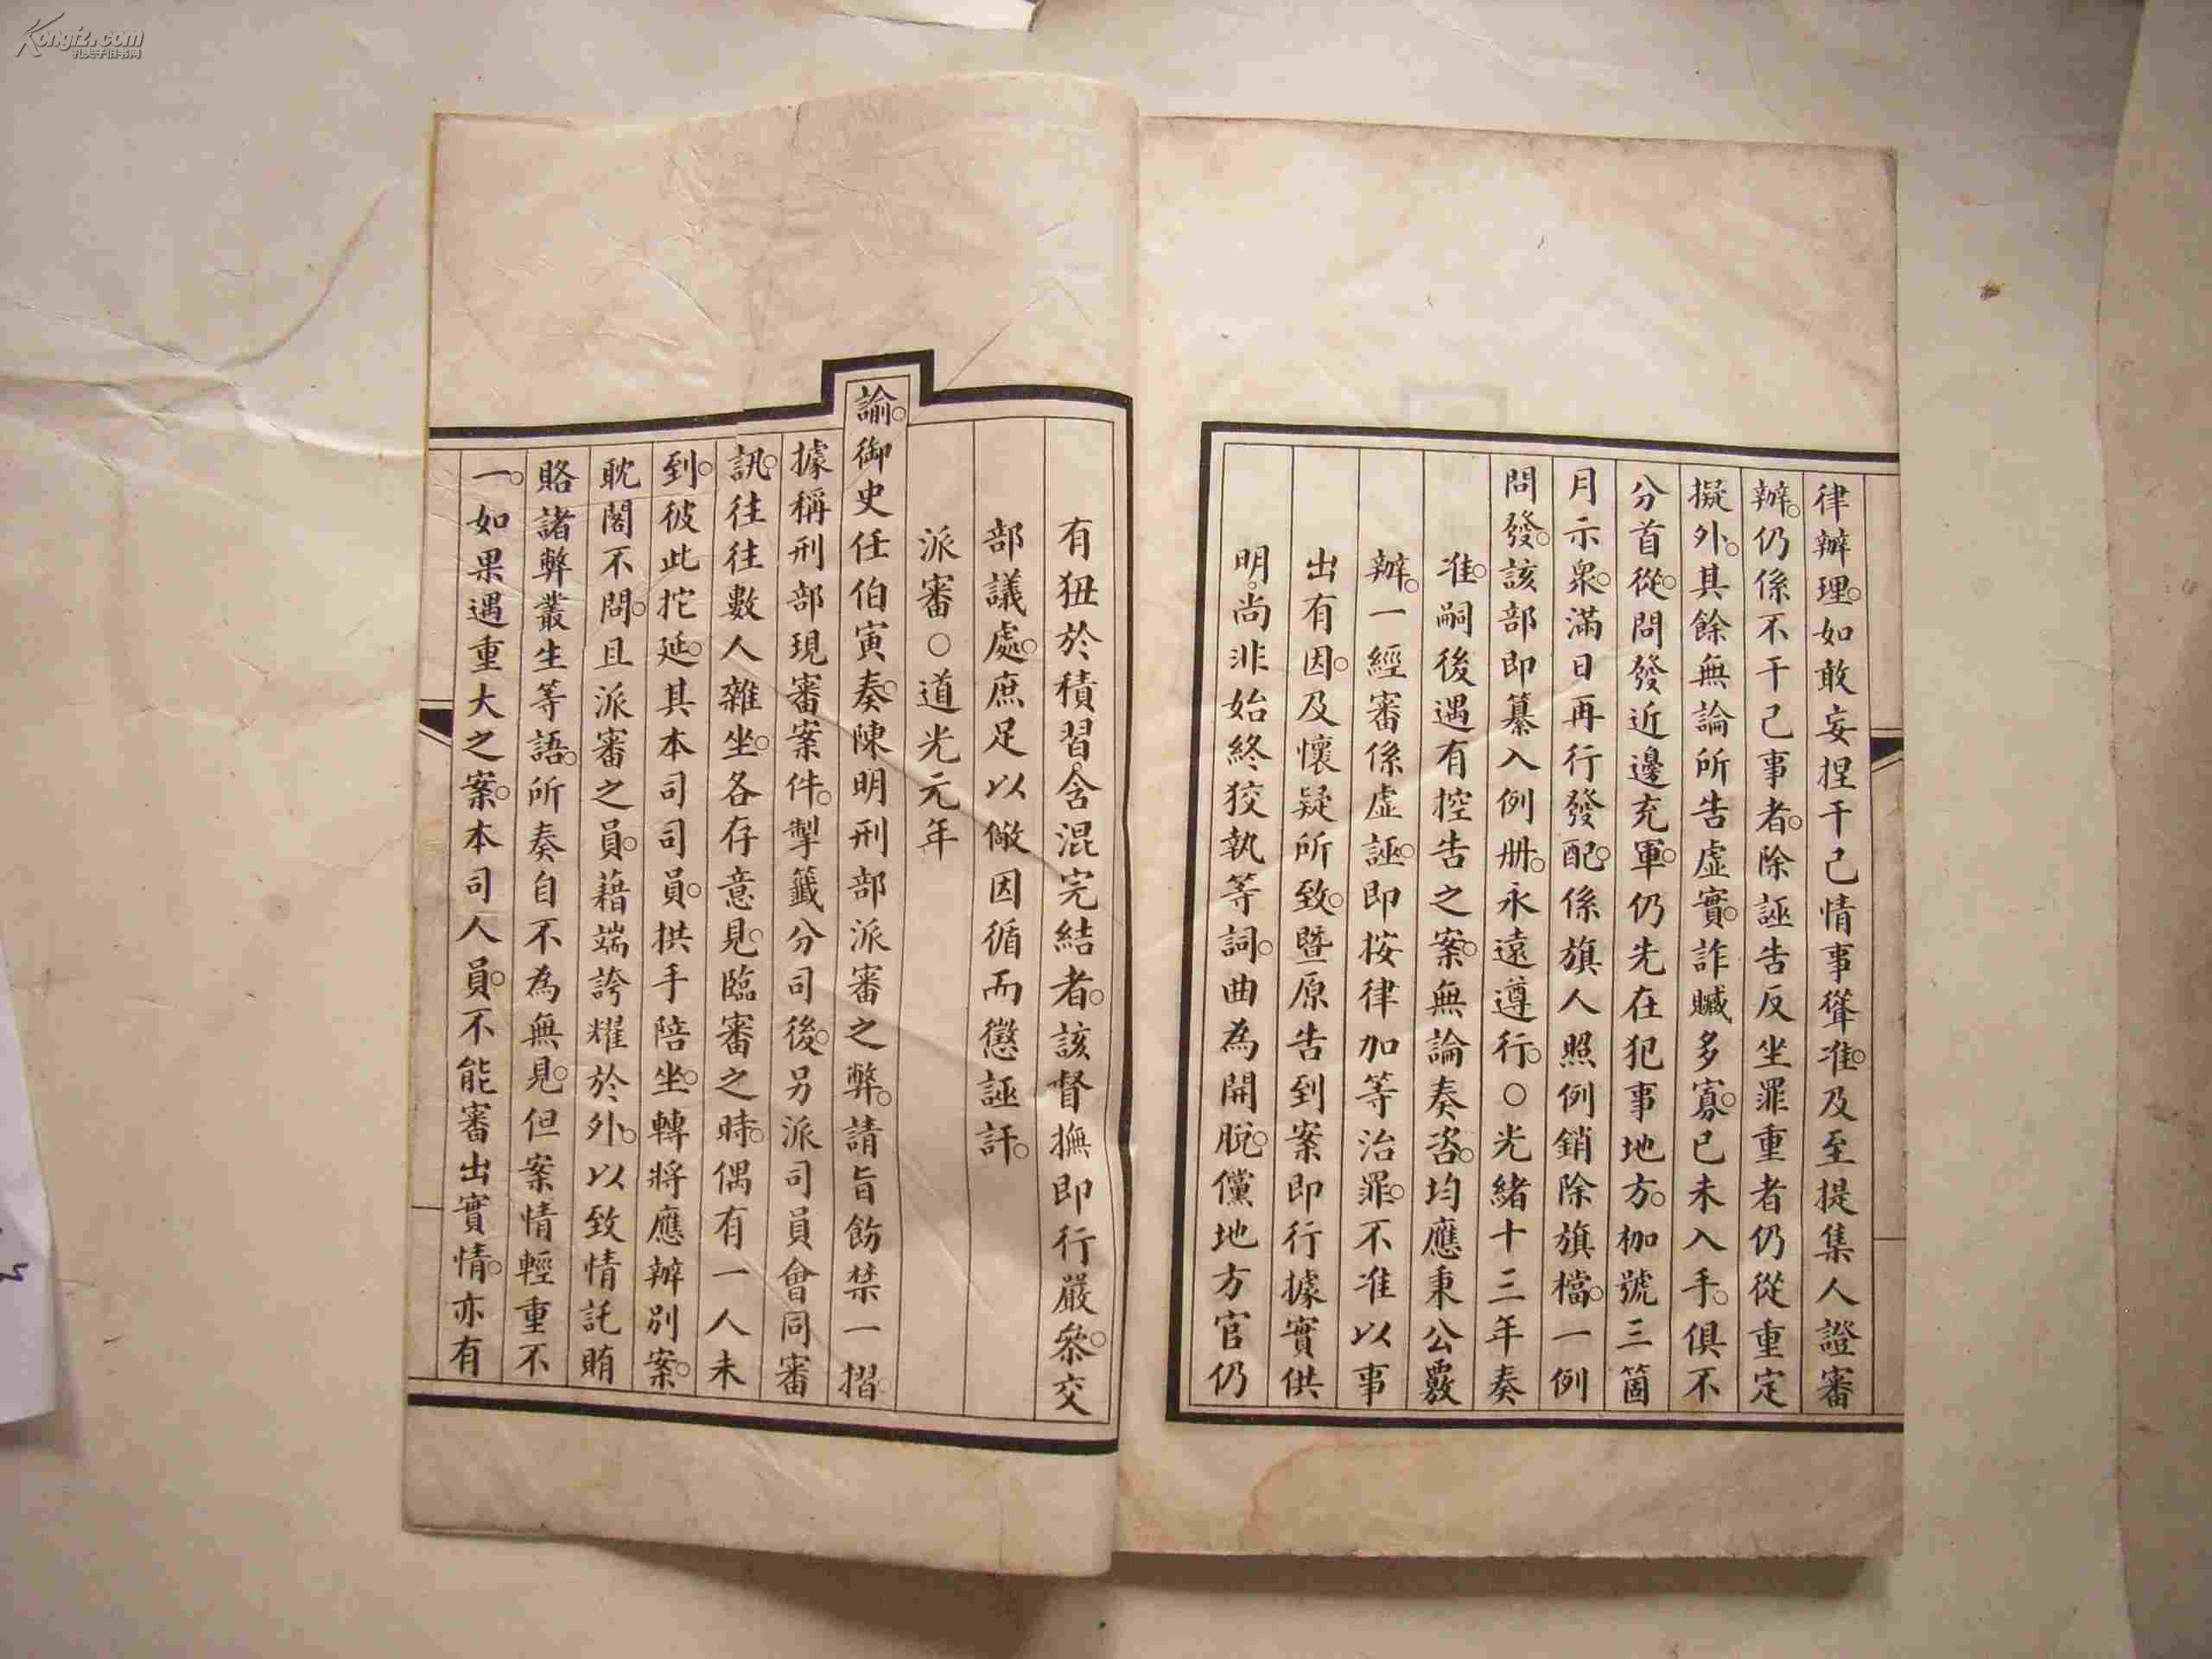 Kongfz.com
孔夫子旧书网
律辦理。如敢妄捏干己情事聳准。及至提集人證審
辦。仍係不干己事者。除誣告反坐罪重者仍從重定
擬外。其餘無論所告虛實。詐贓多寡。已未入手。俱不
分首從。問發近邊充軍。仍先在犯事地方。枷號三箇
月示衆。滿日再行發配。係旗人照例銷除旗檔。一例
問發。該部即纂入例册。永遠遵行。○光緒十三年奏
准。嗣後遇有控告之案。無論奏咨。均應秉公覈
辦。一經審係虛誣。即按律加等治罪。不准以事
出有因。及懷疑所致。曁原告到案即行據實供
明。尚非始終狡執等詞。曲為開脫。儻地方官仍
有狃於積習。含混完結者。該督撫即行嚴叅。交
部議處。庶足以儆因循而懲誣訐。
派審○道光元年
諭。御史任伯寅奏。陳明刑部派審之弊。請旨飭禁一摺。
據稱刑部現審案件。掣籤分司後。另派司員會同審
訊。往往數人雜坐。各存意見。臨審之時。偶有一人未
到。彼此拕延。其本司司員。拱手陪坐。轉將應辦別案。
耽閣不問。且派審之員。藉端誇耀於外。以致情託賄
賂諸弊叢生等語。所奏自不為無見。但案情輕重不
一。如果遇重大之案。本司人員。不能審出實情。亦有